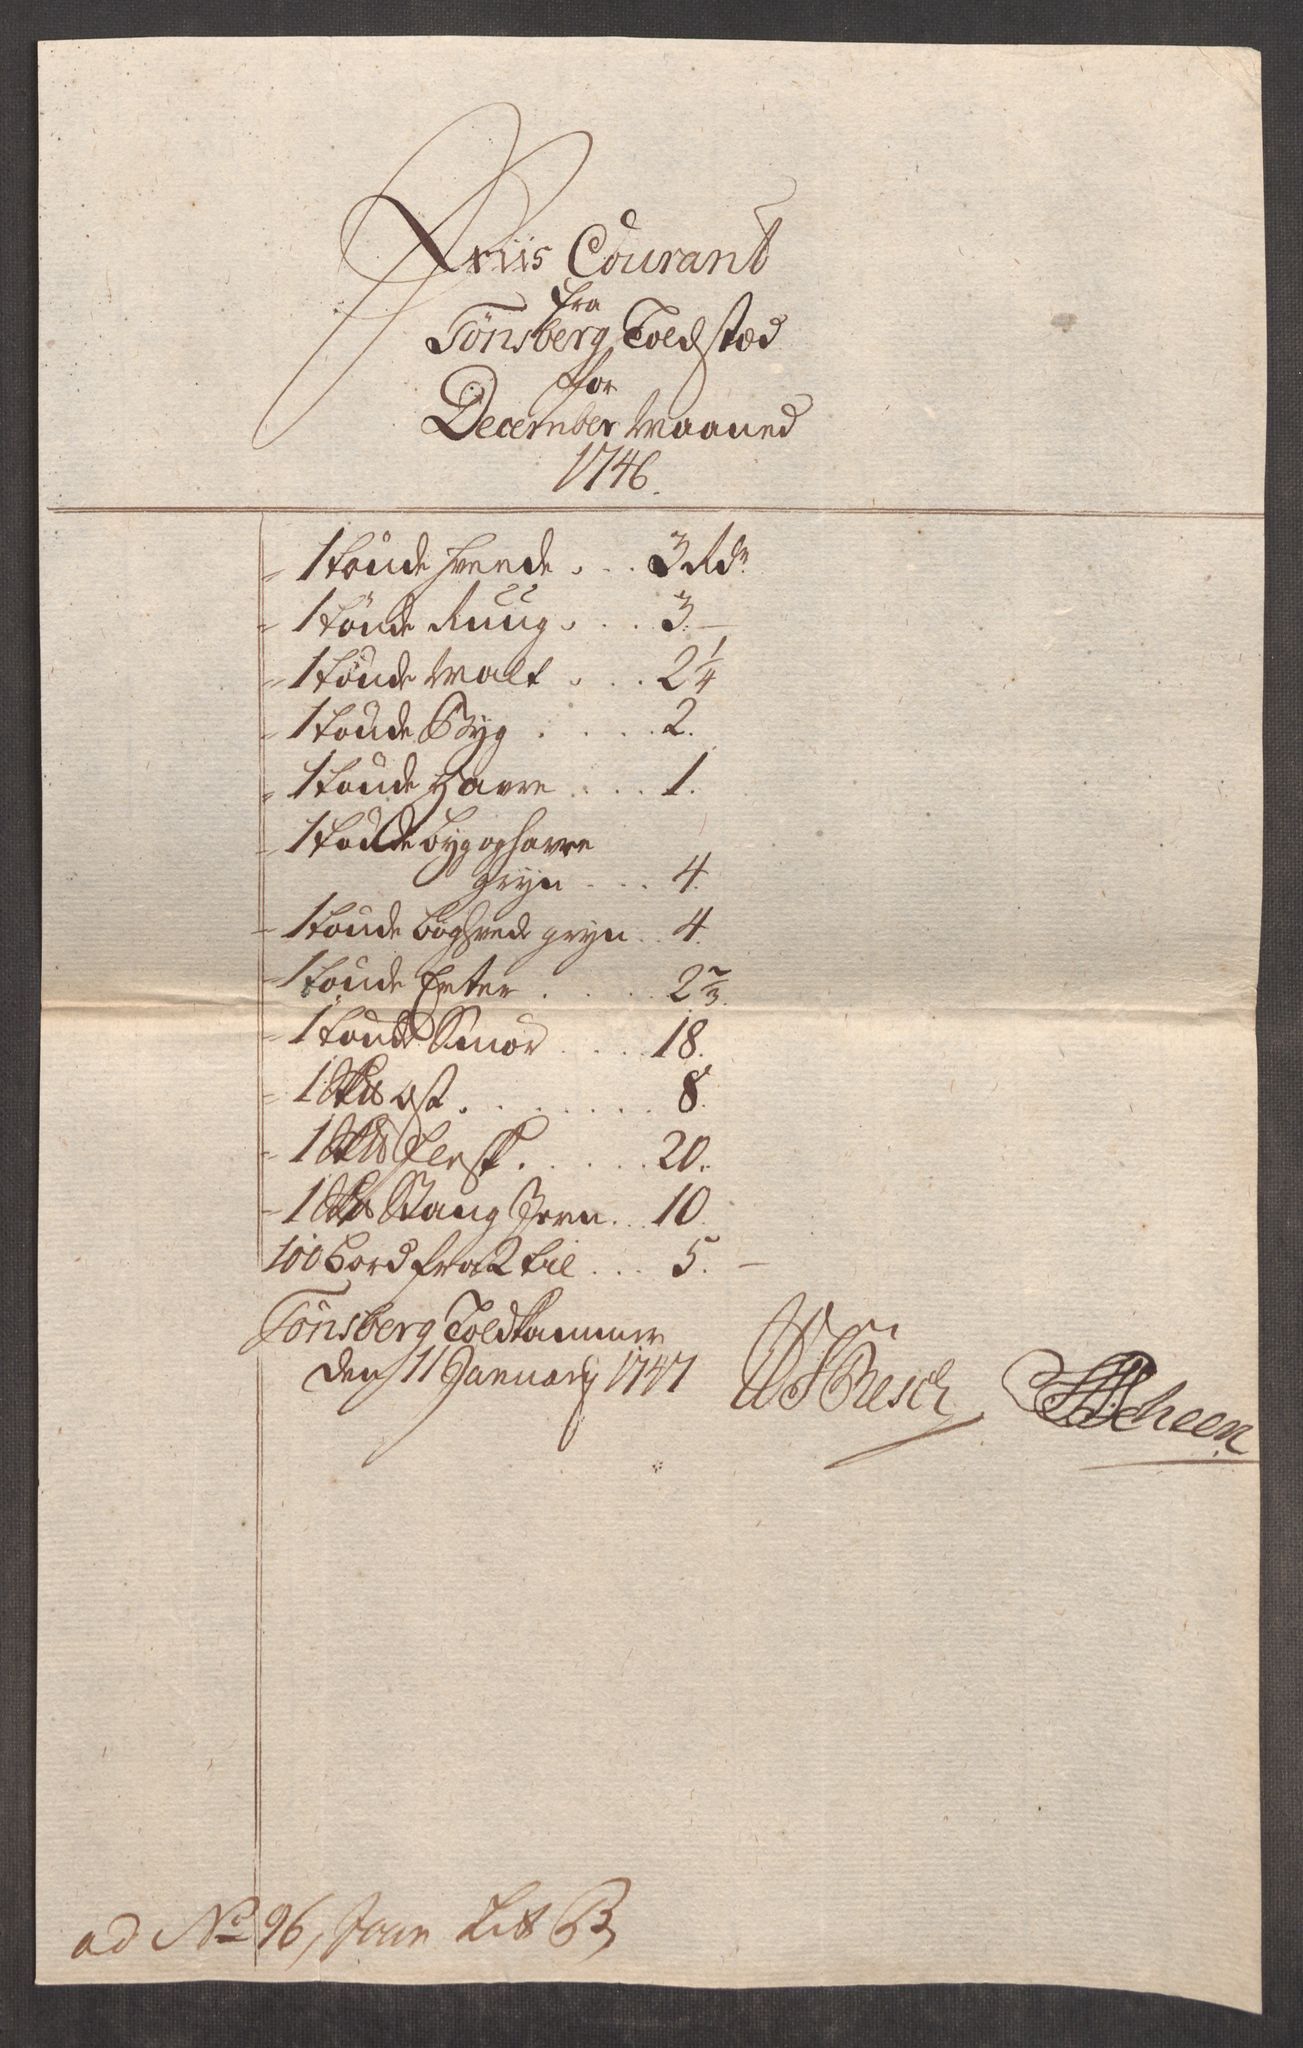 Priis Courant
fra
Tönsberg Toldstæd
for
December Maaned
1746.
1 tønde Hvede . . . 3 Rdr
1 tønde Ruug . . . 3. —
1 tønde Malt . . . 2 1/4
1 tønde Byg . . . . . 2.
1 tønde Havre . . . . 1.
1 tønde byg og havre
gryn . . . 4.
1 tønde boghvede gryn . . 4.
1 tønde Erter . . . . . 2 2/3.
1 tønde Smør . . . . 18.
1 Sk℔ Ost . . . . . . . . 8.
1 Sk℔ Flesk . . . . . . 20.
1 Sk℔ Stang Jern . . . 10.
100 Bord fra 2 til . . . 5. —
Tönsberg Toldkammer
den 11 January 1747
Scheen
ad No 96, Jan Lit B